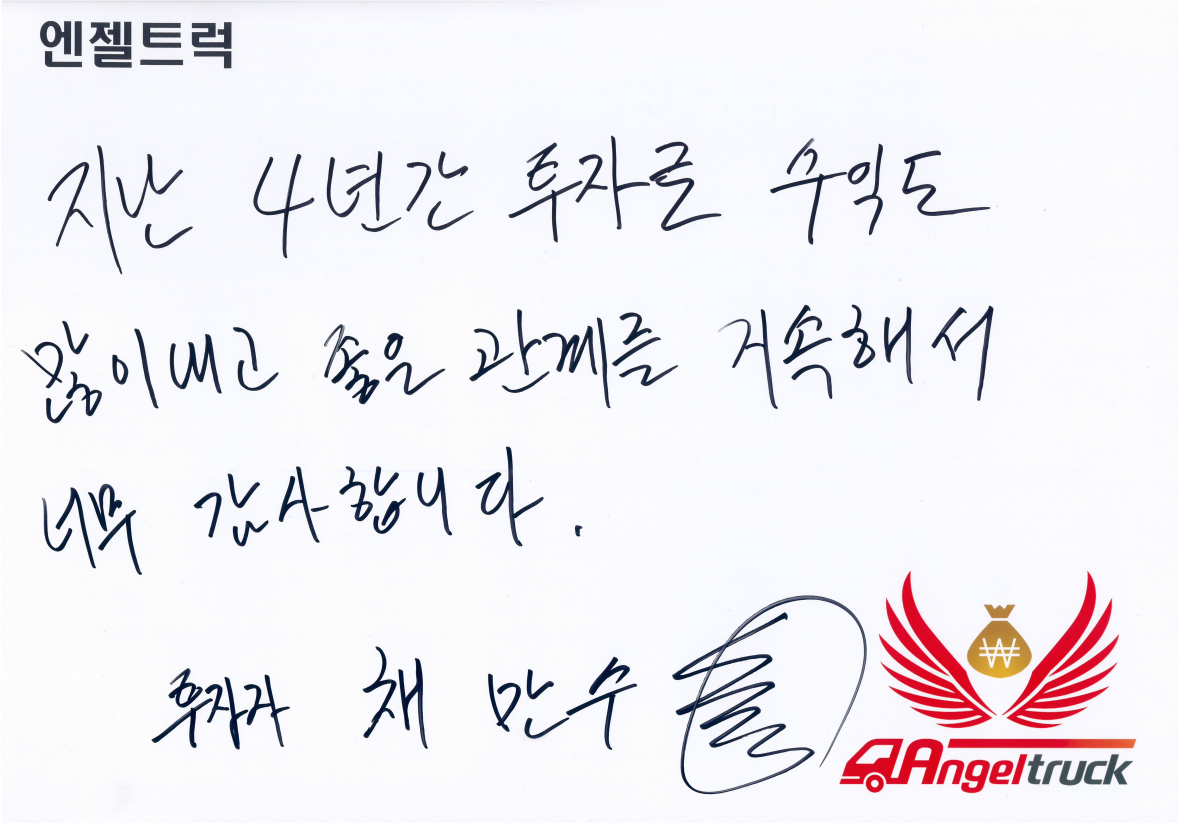 엔젤트럭
지난 4년간 투자로 수익도
많이내고 좋은 관계를 지속해서
너무 감사합니다.
투자자 채만수
₩
Angeltruck